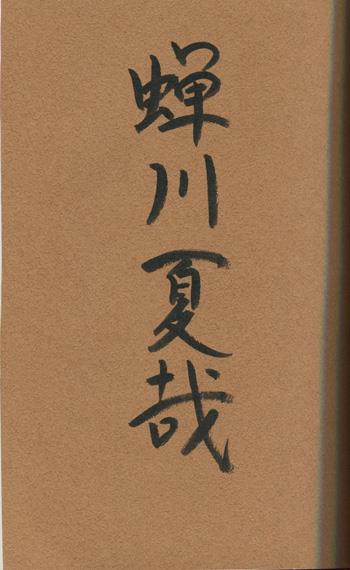 蝉川夏哉